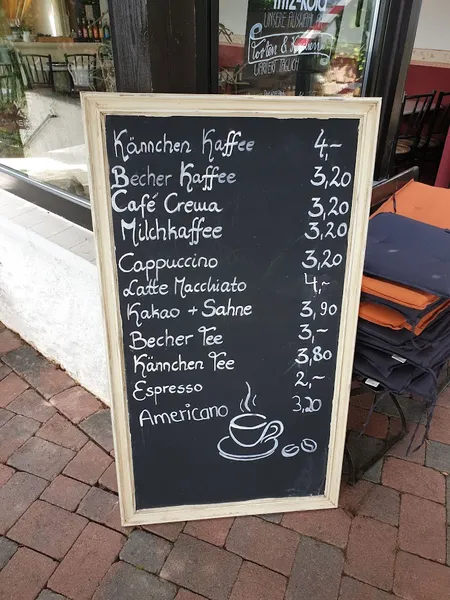 UNSERE AUSWAHL AN
Torten & Kuchen
WARTET TÄGLICH
Kännchen Kaffee 4,-
Becher Kaffee 3,20
Café Crema 3,20
Milchkaffee 3,20
Cappuccino 3,20
Latte Macchiato 4,-
Kakao + Sahne 3,90
Becher Tee 3,-
Kännchen Tee 3,80
Espresso 2,-
Americano 3,20